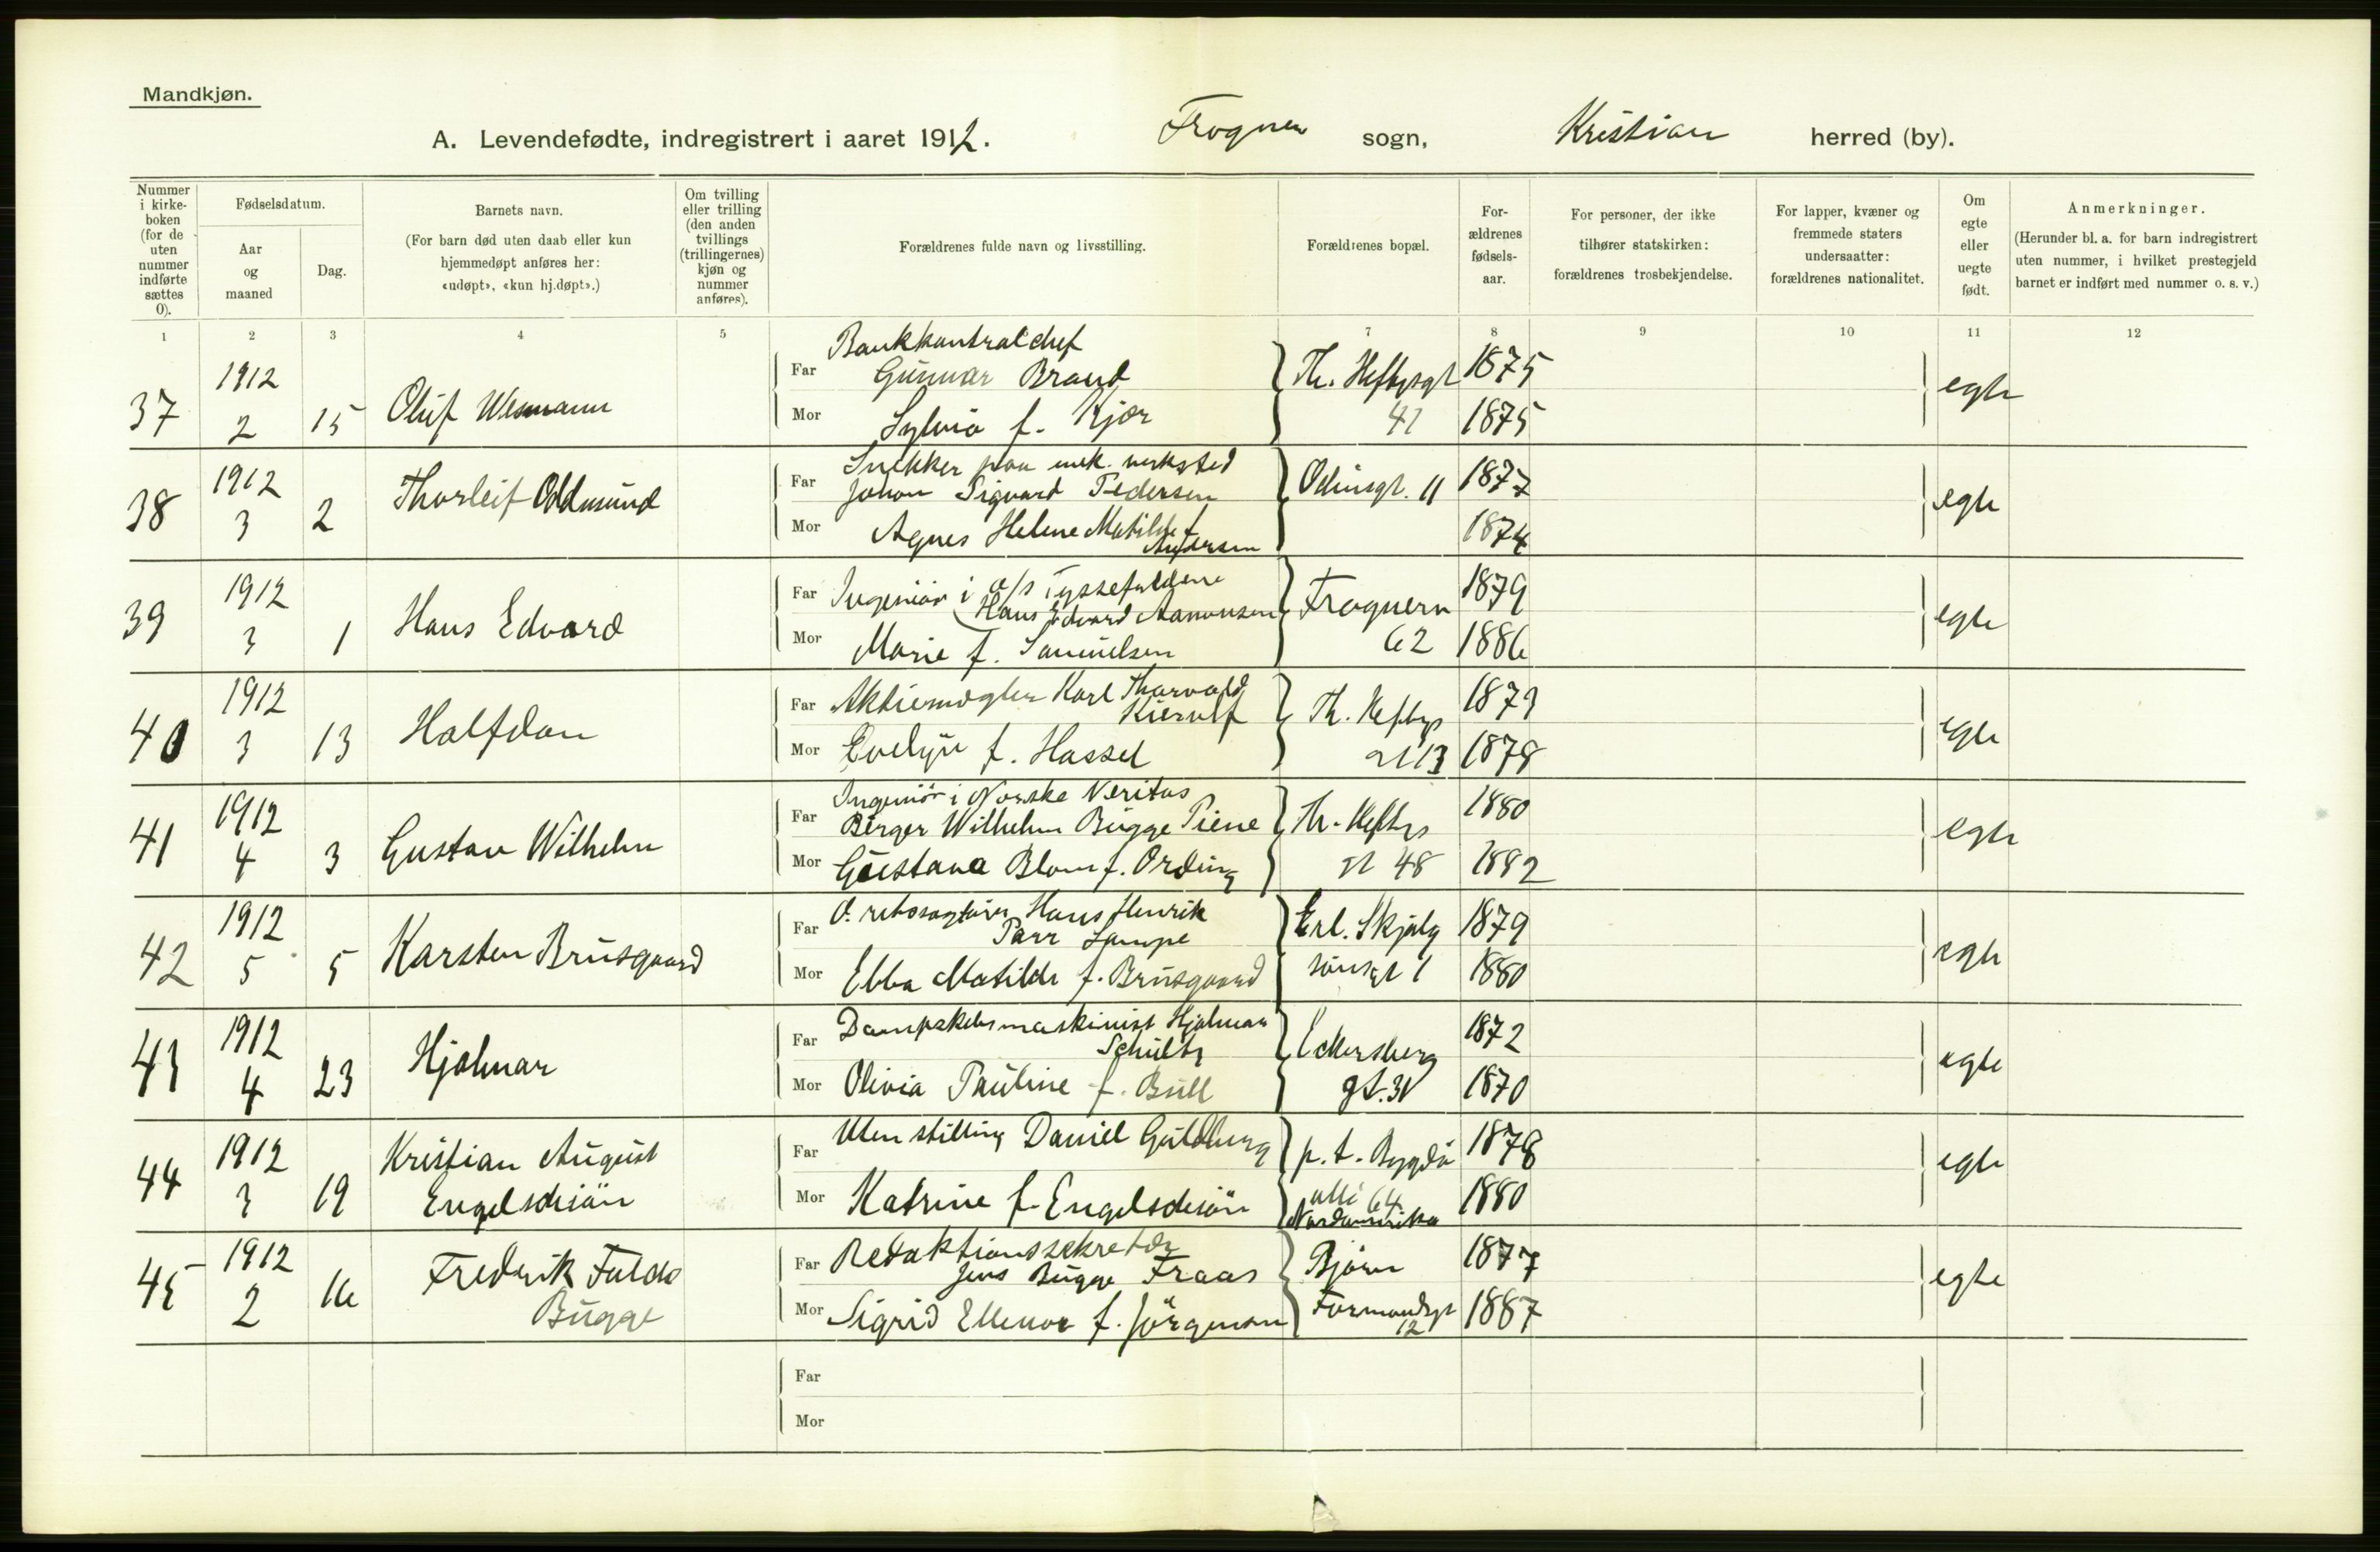 Mandkjøn.
A. Levendefødte, indregistrert i aaret 1912. Frogner sogn, Kristian herred (by).
Nummer i kirke-boken (for de uten nummer indførte sættes 0).
Fødselsdatum.
Aar og maaned
Dag.
Barnets navn.
(For barn død uten daab eller kun hjemmedøpt anføres her: «udøpt», «kun hj.døpt».)
Om tvilling eller trilling (den anden tvillings (trillingernes) kjøn og nummer anføres).
Forældrenes fulde navn og livsstilling.
Forældrenes bopæl.
For-ældrenes fødsels-aar.
For personer, der ikke tilhører statskirken: forældrenes trosbekjendelse.
For lapper, kvæner og fremmede staters undersaatter: forældrenes nationalitet.
Om egte eller uegte født.
Anmerkninger.
(Herunder bl. a. for barn indregistrert uten nummer, i hvilket prestegjeld barnet er indført med nummer o. s. v.)
1 2 3 4 5 7 8 9 10 11 12
37 1912 2 15 Oluf Wesmann
Far Bankkontrolchef
Gunnar Brand Th. Heftysgt 1875 egte
Mor Sylvia f. Kjær 41 1875
38 1912 3 2 Thorleif Oddmund
Far Snekker paa mek. verksted
Johan Sigvard Pedersen Odinsgt. 11 1877 egte
Mor Agnes Helene Matilde f. Andersen 1874
39 1912 3 1 Hans Edvard
Far Ingeniør i A/S Tyssefaldene
Hans Edvard Aamonsen Frognerv 1879 egte
Mor Marie f. Samuelsen 62 1886
40 1912 3 13 Halfdan
Far Aktiemægler Karl Thorvald
Kierulf Th. Heftys 1879 egte
Mor Evelyn f. Hassel gt 13 1878
41 1912 4 3 Gustav Wilhelm
Far Ingeniør i Norske Veritas
Birger Wilhelm Bugge Piene Th. Heftys 1880 egte
Mor Gustava Blom f. Ording gt 48 1882
42 1912 5 5 Karsten Brusgaard
Far O. retssagfører Hans Henrik
Parr Lampe Erl. Skjalg 1879 egte
Mor Ebba Matilde f. Brusgaard sønsgt 1 1880
43 1912 4 23 Hjalmar
Far Dampskibsmaskinist Hjalmar
Schultz Eckersberg 1872 egte
Mor Olivia Pauline f. Bull gt. 31 1870
44 1912 3 19 Kristian August
Engelschiøn
Far Uten stilling Daniel Guldberg p. t. Bygdø 1878 egte
Mor Katrine f. Engelschiøn alle 64 1880
Nordamerika
45 1912 2 16 Fredrik Fulda
Bugge
Far Redaktionssekretær
Jens Bugge Fraas Bjørn 1877 egte
Mor Sigrid Ellenor f. Jørgensen Farmandsgt 12 1887
Far
Mor